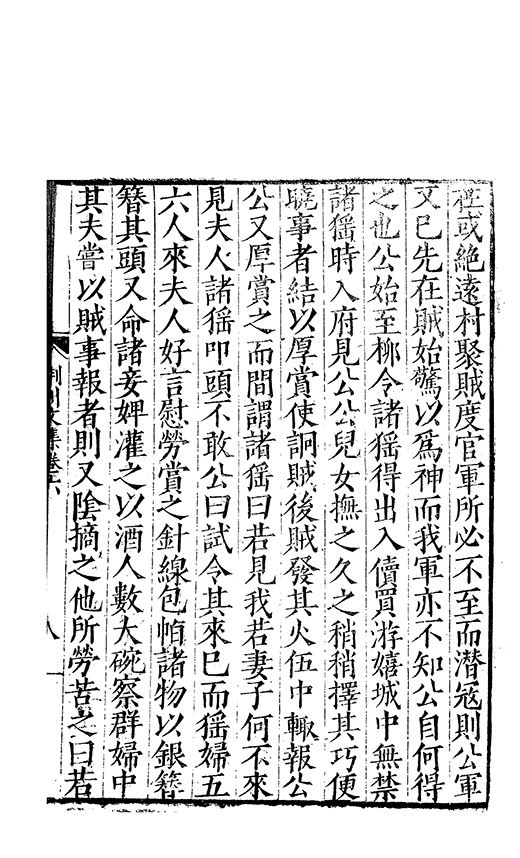 徑或絕遠村聚賊度官軍所必不至而潛寇則公軍
又已先在賊始驚以爲神而我軍亦不知公自何得
之也公始至栁令諸猺得出入儥買游嬉城中無禁
諸猺時入府見公公兒女撫之久之稍稍擇其巧便
曉事者結以厚賞使詗賊後賊發其火伍中輙報公
公又厚賞之而間謂諸猺曰若見我若妻子何不來
見夫人諸猺叩頭不敢公曰試令其來已而猺婦五
六人來夫人好言慰勞賞之針線包帕諸物以銀簪
簪其頭又命諸妾婢灌之以酒人數大碗察群婦中
其夫嘗以賊事報者則又陰摘之他所勞苦之曰若
荆川文集卷
八